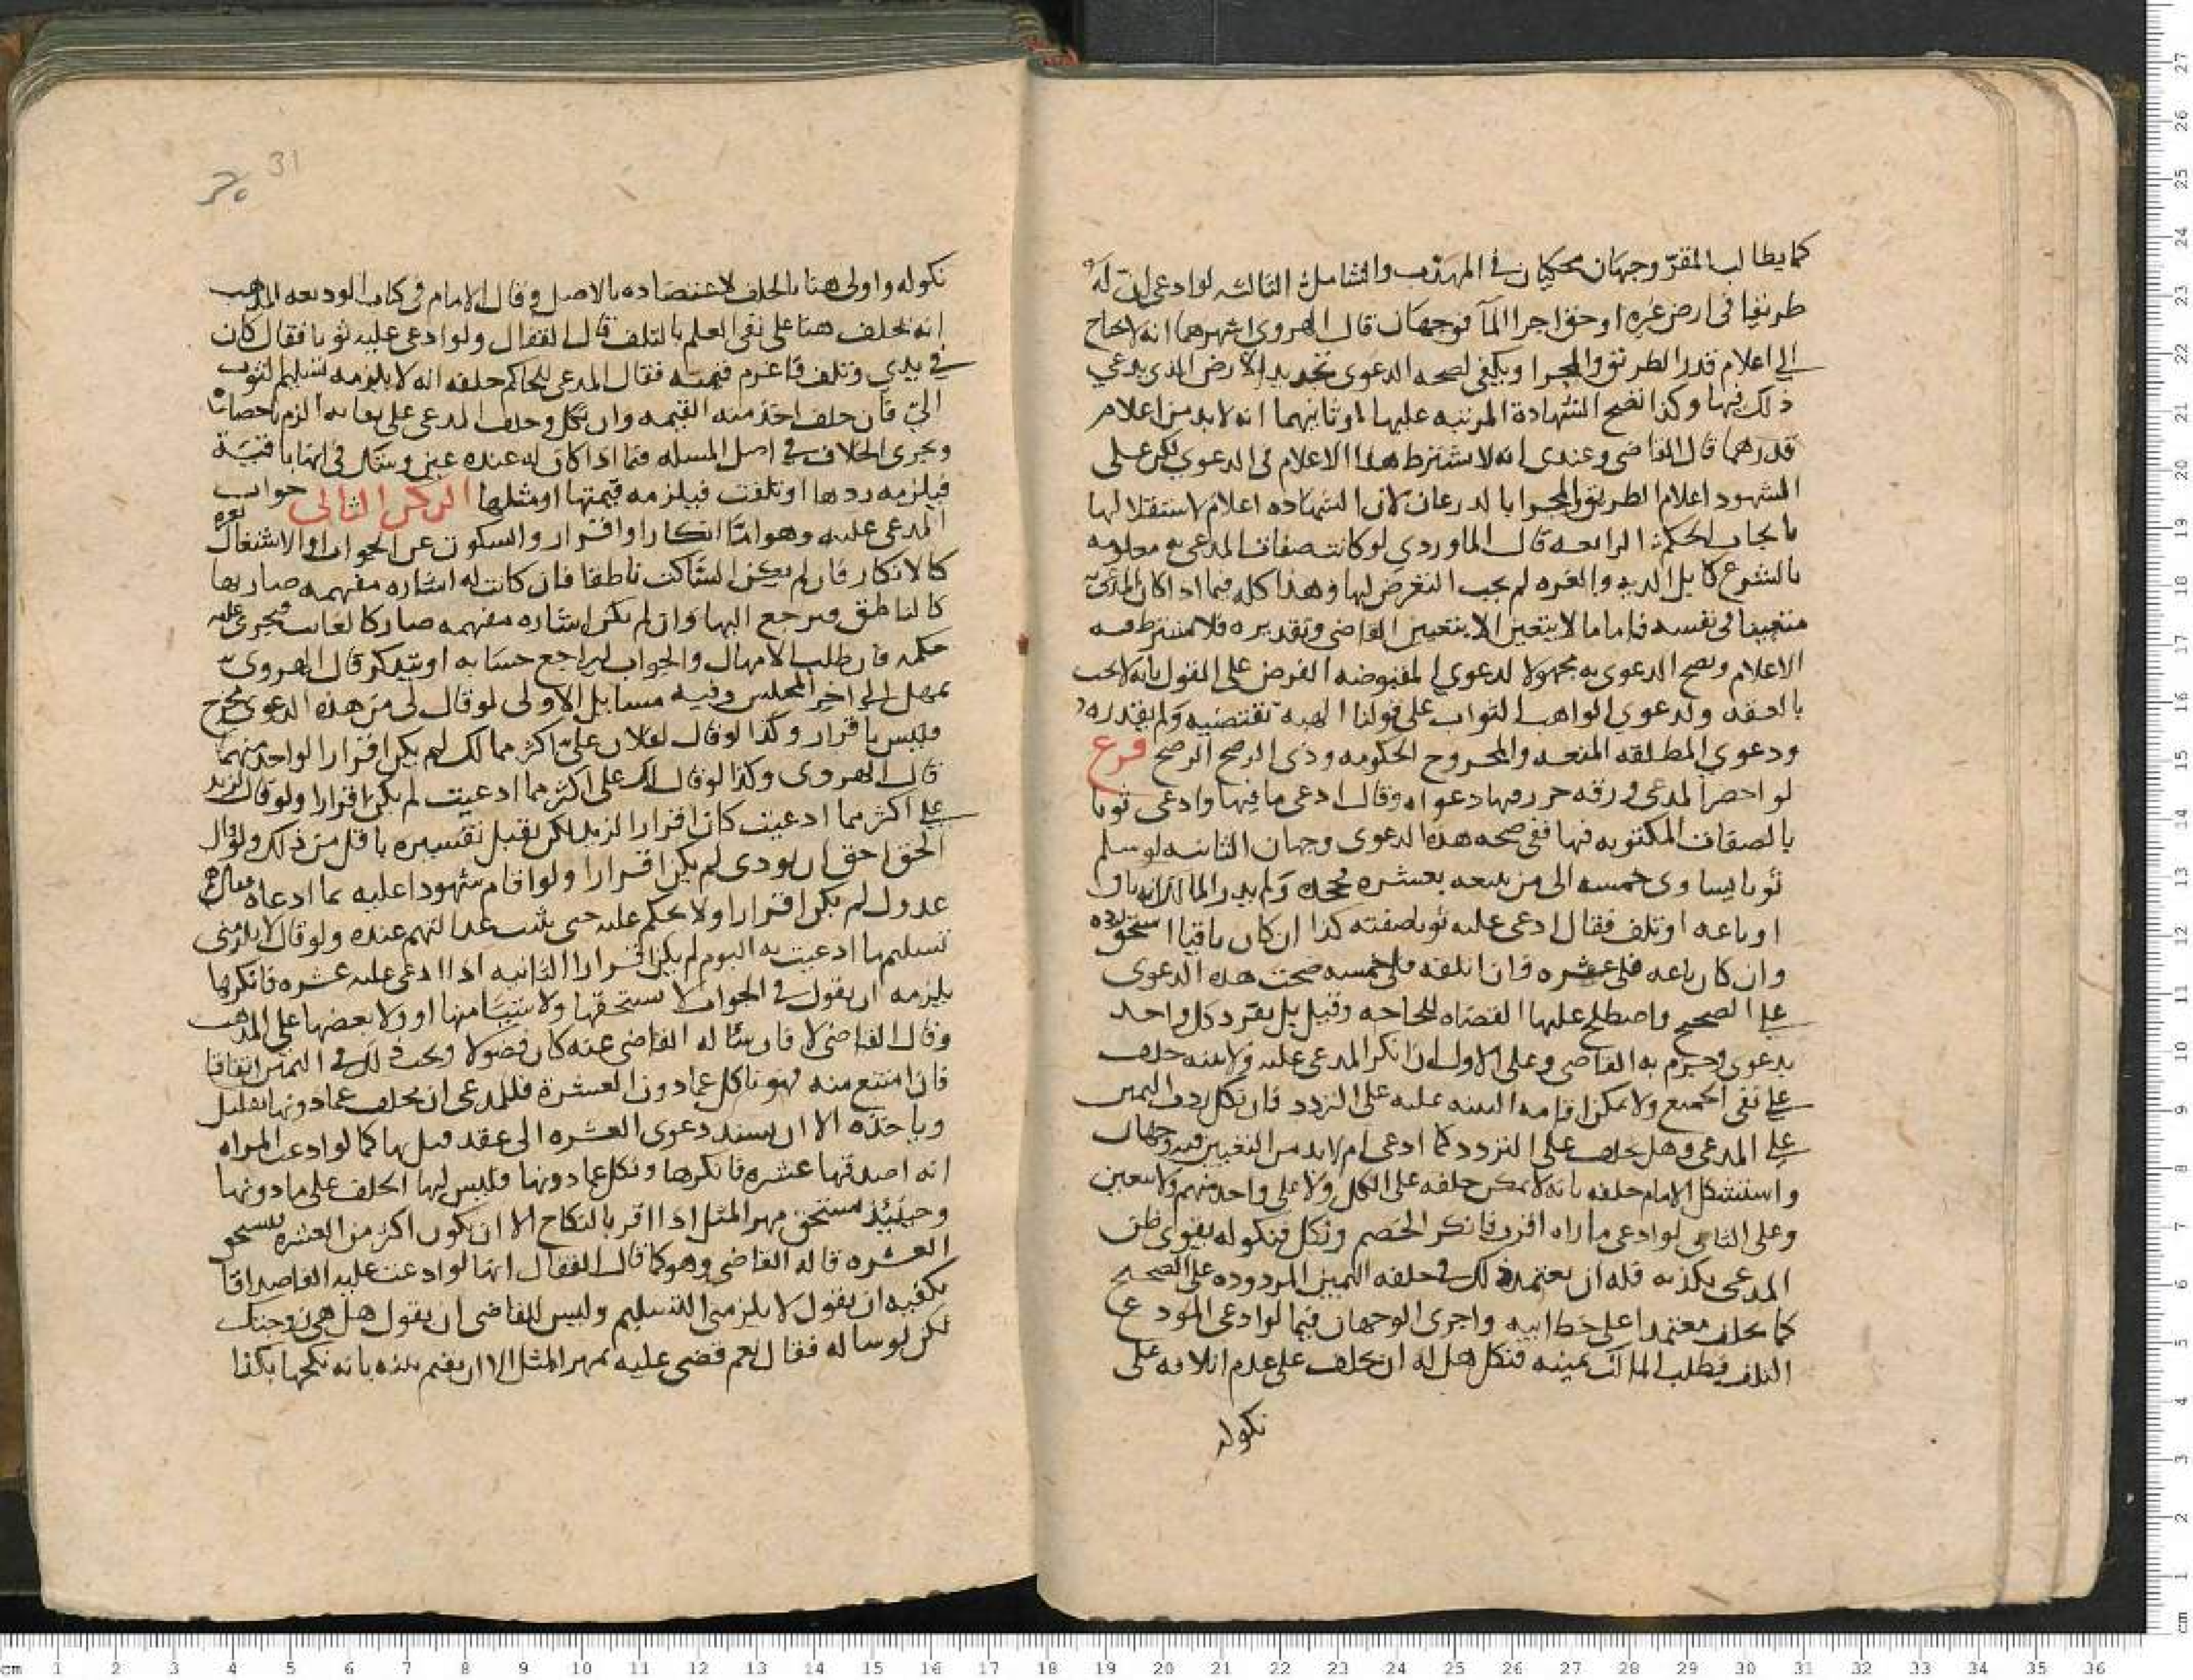 كما يطالب المقرّ وجهان محكيان في المهذب والشامل الثالثه لو ادعى ان له
طريقا في ارض غيره او حق اجرا المآ فوجهان قال الهروي اشهرهما انه لا يحتاج
الى اعلام قدر الطريق والمجرا ويكفي لصحه الدعوى تحديد الارض الذي يدعي
ذلك فيها وكذا تصح الشهادة المرتبه عليها وثانيهما انه لابد من اعلام
قدرهما قال القاضي وعندى انه لا يشترط هذا الاعلام في الدعوي لكن على
الشهود اعلام الطريق والمجرا بالدرعان لان الشهاده اعلام لاستقلالها
بايجاب الحكم الرابعه قال الماوردي لو كانت صفات المدعى به معلومه
بالشرع كابل الديه والغره لم يجب التعرض لها وهذا كله فيما اذا كان المدعى
متعينا في نفسه فاما ما لا يتعين الا بتعيين القاضي وتقديره فلا يشترط فيه
الاعلام وتصح الدعوى به مجهولا كدعوي المفوضه الفرض على القول بانه لا يجب
بالعقد وكدعوي الواهب الثواب على قولنا الهبه تقتضيه ولم يقدره
ودعوي المطلقه المتعه والمجروح الحكومه وذى الرضح الرضح فرع
لو احضر المدعى ورقه حرر فيها دعواه وقال ادعى ما فيها وادعى ثوبا
بالصفات المكتوبه فيها ففي صحه هذه الدعوى وجهان الثانيه لو سلم
ثوبا يساوى خمسه الى من يبيعه بعشره فجحده ولم يدر المالك انه باق
او باعه او تلف فقال ادعى عليه ثوبا صفته كذا ان كان باقيا استحق رده
وان كان باعه فلى عشره وان اتلفه فلى خمسه صحت هذه الدعوى
على الصحيح واصطلح عليها القضاه للحاجه وقيل بل يفرد كل واحد
بدعوى وجزم به القاضي وعلى الاول ان انكر المدعى عليه ولا بينه حلف
على نفى الجميع ولا يمكن اقامه البينه عليه على التردد فان نكل ردت اليمين
على المدعى وهل يحلف على التردد كما ادعى ام لابد من التعيين فيه وجهان
واستشكل الامام حلفه بانه لا يمكن حلفه على الكل ولا على واحد منهم ولا يتعين
وعلى الثاني لو ادعى ما راه اقرب فانكر الخصم ونكل فنكوله يقوى ظن
المدعى بكذبه فله ان يعتمد ذلك في حلفه اليمين المردوده على الصحيح
كما يحلف معتمدا على خط ابيه واجرى الوجهان فيما لو ادعى المودع
التلف فطلب المالك يمينه فنكل هل له ان يحلف على عدم اتلافه على
نكوله
31
نكوله واولى هنا بالحلف لاعتضاده بالاصل وقال الامام في كتاب الوديعه المذهب
انه يحلف هنا على نفى العلم بالتلف قال القفال ولو ادعى عليه ثوبا فقال كان
في يدي وتلف فاغرم قيمته فقال المدعى للحاكم حلفه انه لا يلزمه تسليم الثوب
اليّ فان حلف اخذ منه القيمه وان نكل وحلف المدعى على بقائه الزم باحضاره
ويجرى الخلاف في اصل المسله فيما اذا كان له عنده عين وشك في انها باقية
فيلزمه ردها او تلفت فيلزمه قيمتها او مثلها الركن الثانى جواب
المدعى عليه وهو امّا انكار او اقرار والسكوت عن الجواب والاشتغال
كالانكار فان لم يكن الساكت ناطقا فان كانت له اشاره مفهمه صار بها
كالناطق فيرجع اليها وان لم تكن اشاره مفهمه صار كالغائب فيجرى عليه
حكمه فان طلب الامهال والجواب ليراجع حسابه او يتذكر قال الهروى
يمهل الى اخر المجلس وفيه مسايل الاولى لو قال لى من هذه الدعوى مخرج
فليس باقرار وكذا لو قال لفلان على اكثر مما لك لم يكن اقرارا لواحد منهما
قال الهروى وكذا لو قال لك على اكثر مما ادعيت لم يكن اقرارا ولو قال لزيد
على اكثر مما ادعيت كان اقرارا لزيد لكن يقبل تفسيره باقل من ذلك ولو قال
الحق احق ان يودى لم يكن اقرارا ولو اقام شهودا عليه بما ادعاه فقال هم
عدول لم يكن اقرارا ولا يحكم عليه حتى يثبت عدالتهم عنده ولو قال لا يلزمنى
تسليم ما ادعيت به اليوم لم يكن اقرارا الثانيه اذا ادعى عليه عشره فانكرها
يلزمه ان يقول في الجواب لا يستحقها ولا شيئا منها او ولا بعضها على المذهب
وقال القاضي لا فان سأله القاضى عنه كان فضولا ويجب ذلك في اليمين اتفاقا
فان امتنع منه فهو ناكل عما دون العشرة فللمدعى ان يحلف عما دونها بقليل
وياخذه الا ان يسند دعوى العشره الى عقد قبلها كما لو ادعت المراه
انه اصدقها عشره فانكرها ونكل عما دونها فليس لها الحلف على ما دونها
وحينئذ تستحق مهر المثل اذا اقر بالنكاح الا ان يكون اكثر من العشره فتستحق
العشره قاله القاضى وهو كما قال القفال انها لو ادعت عليه الفا صداقا
يكفيه ان يقول لا يلزمنى التسليم وليس للقاضى ان يقول هل هى زوجتك
لكن لو ساله فقال نعم قضى عليه بمهر المثل الا ان يقيم بينه بانه نكحها بكذا